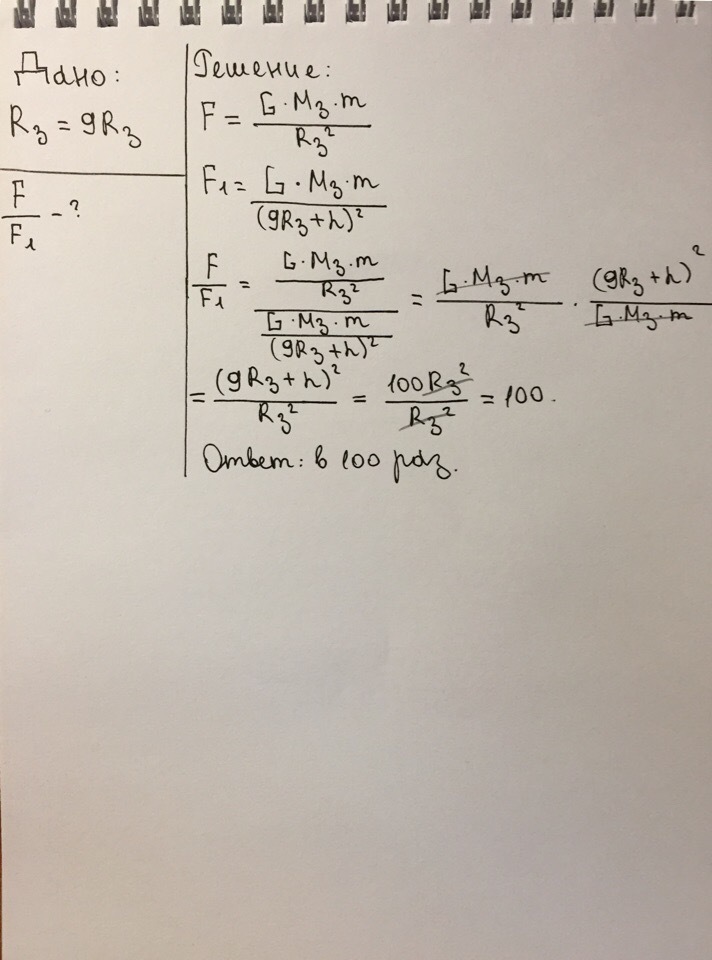 Дано:
R₃ = 9R₃
F/F₁ - ?
Решение:
F = G·M₃·m / R₃²
F₁ = G·M₃·m / (9R₃+h)²
F/F₁ = (G·M₃·m / R₃²) / (G·M₃·m / (9R₃+h)²) = G·M₃·m / R₃² · (9R₃+h)² / G·M₃·m
= (9R₃+h)² / R₃² = 100R₃² / R₃² = 100.
Ответ: в 100 раз.